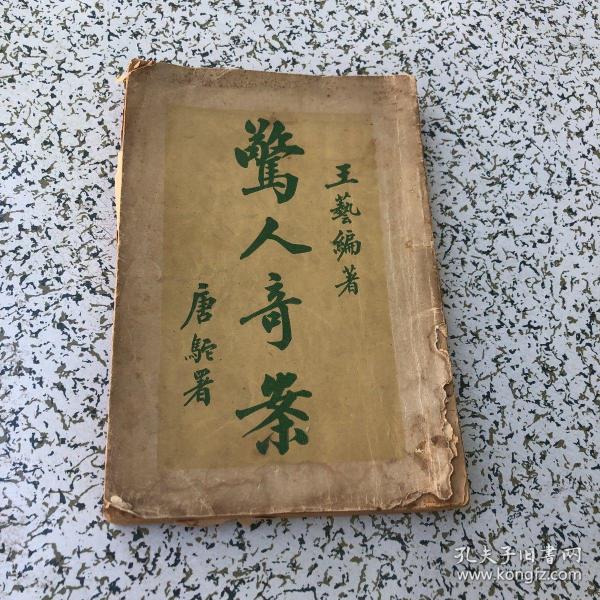 王藝編著
驚人奇案
唐駝署
孔夫子旧书网
www.kongfz.com